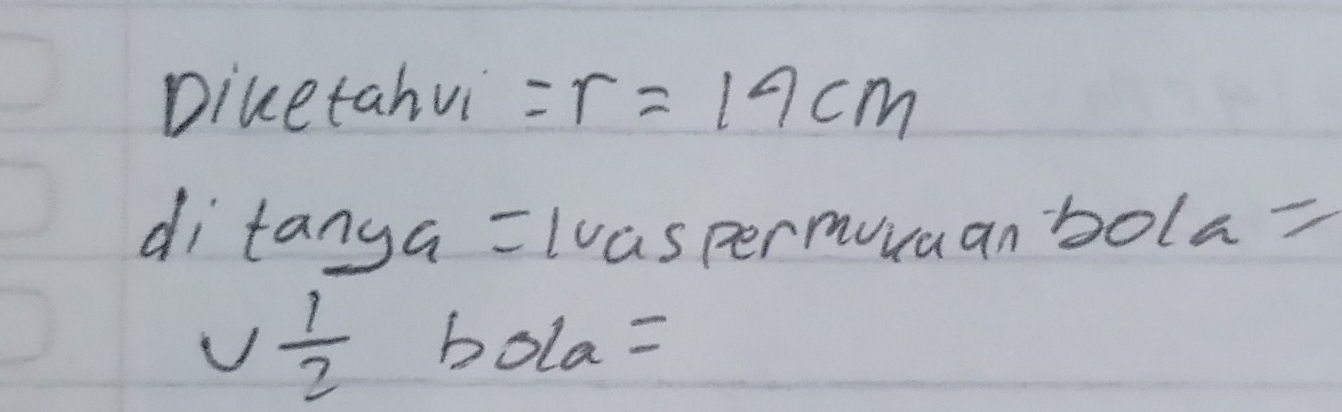 Diketahui = r = 14 cm
di tanya = luas permukaan bola =
v 1/2 bola =